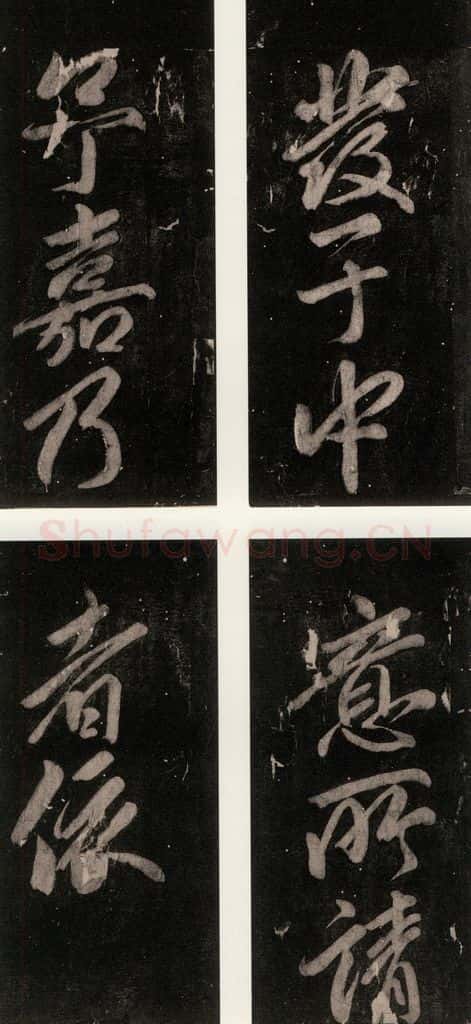 發于中
孚嘉乃
Shufawang.CN
意所請
者依